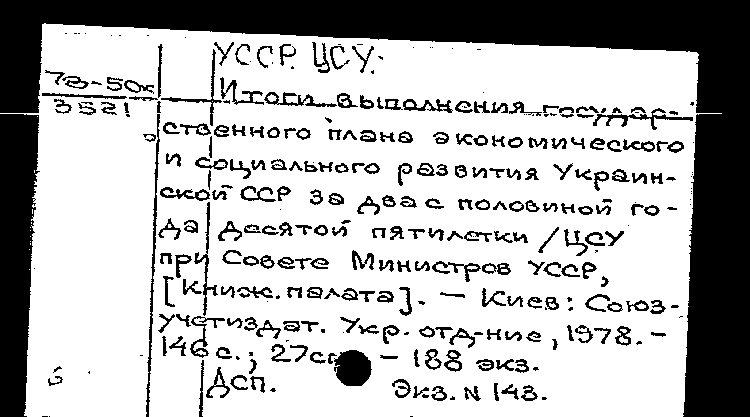 УССР. ЦСУ.
78-50к
3521
Итоги выполнения государ-
ственного плана экономического
и социального развития Украин-
ской ССР за два с половиной го-
да десятой пятилетки / ЦСУ
при Совете Министров УССР,
[Книж. палата]. — Киев: Союз-
учетиздат. Укр. отд-ние, 1978. –
146 с.; 27см – 188 экз.
ДСП. Экз. N 143.